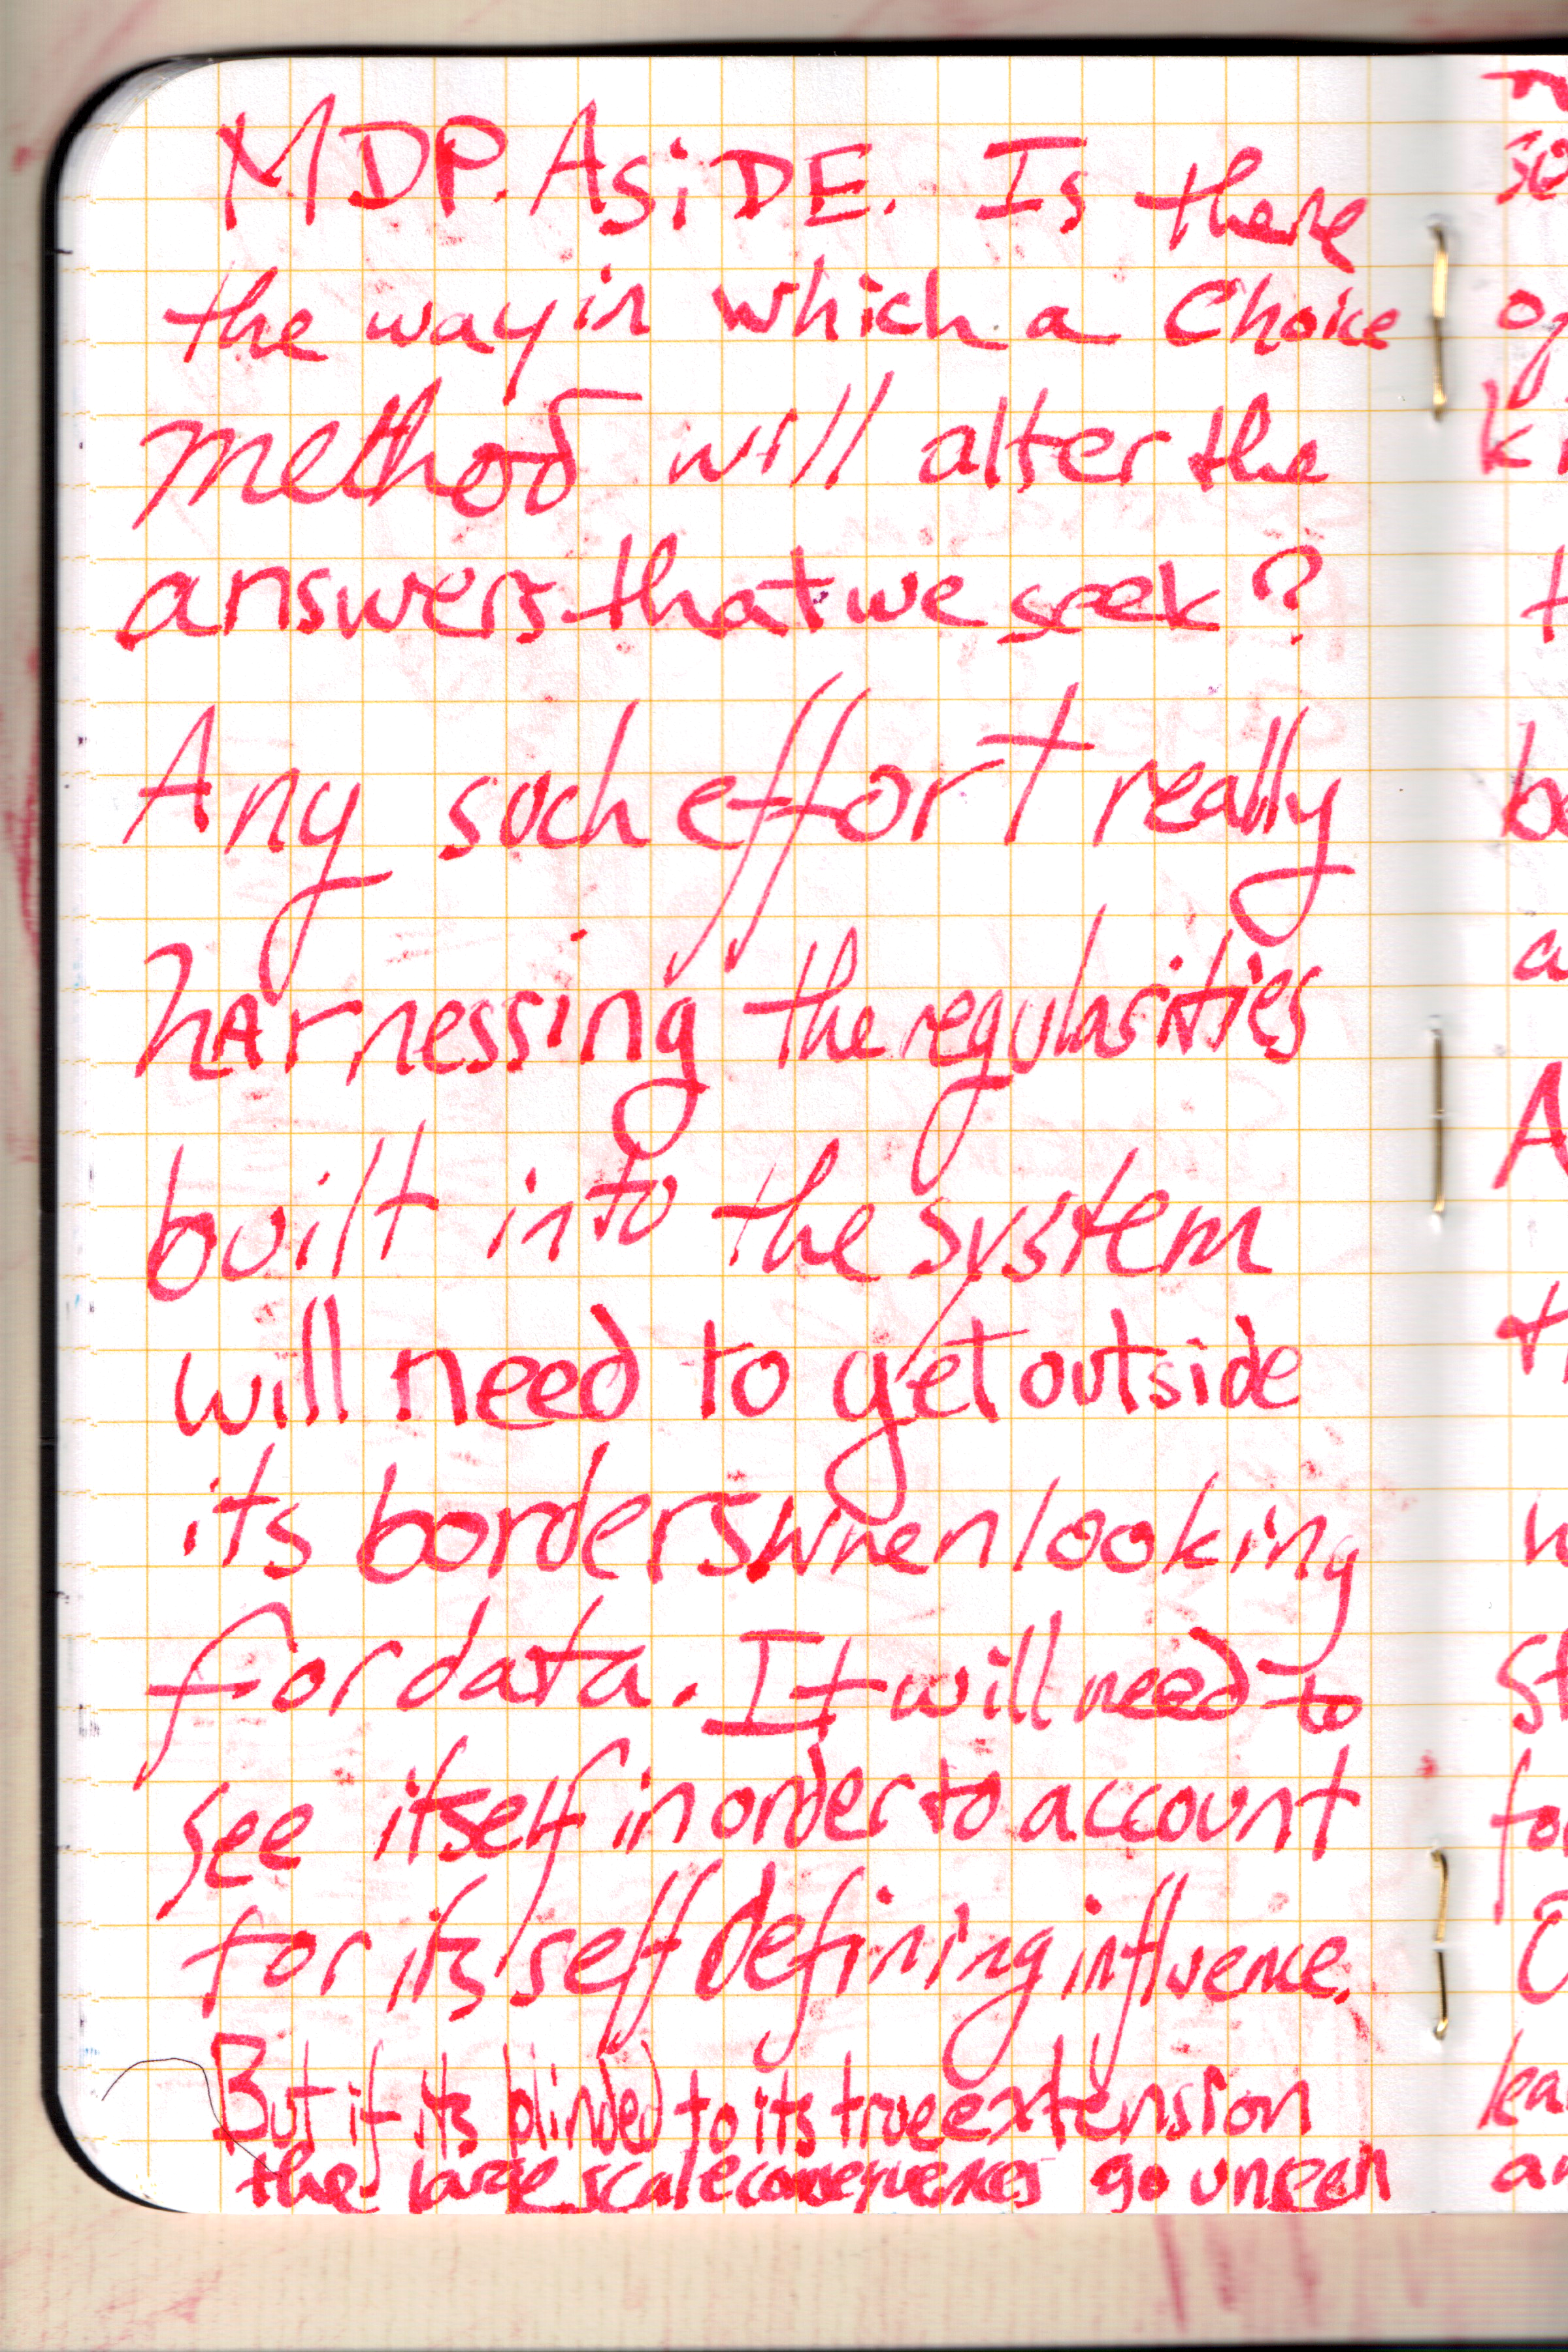 MDP. ASiDE. Is there
the way in which a Choice
method will alter the
answers that we seek?
Any such effort really
harnessing the regularities
built into the system
will need to get outside
its borders when looking
for data. It will need to
see itself in order to account
for its self defining influence.
But if its blinded to its true extension
the large scale consequences go unseen